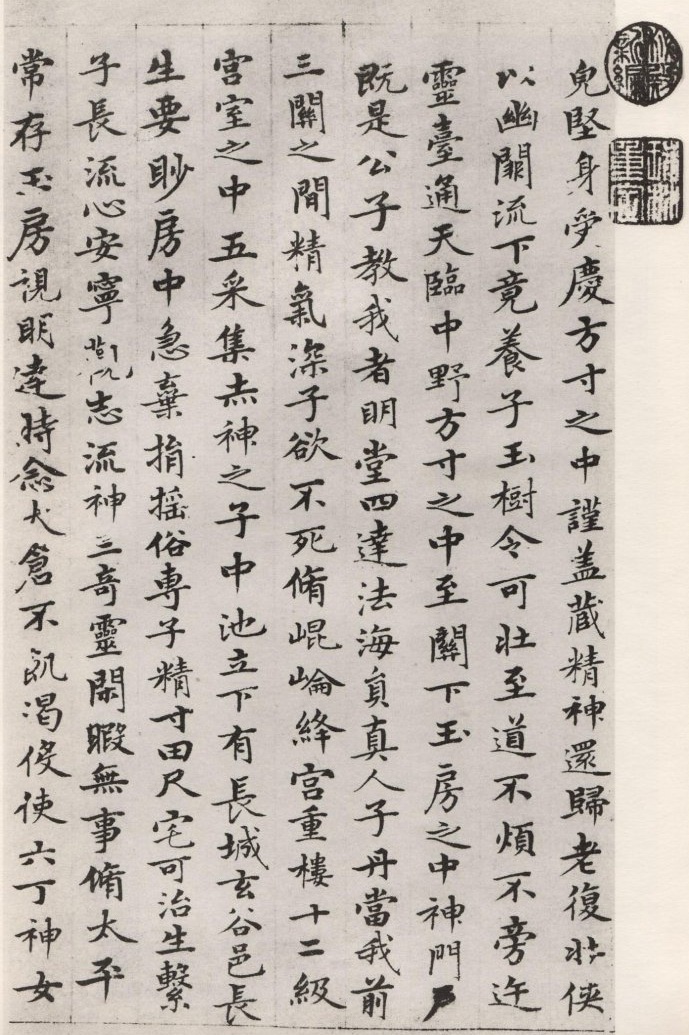 皃堅身受慶方寸之中謹盖藏精神還歸老復壯俠
以幽闕流下竟養子玉樹令可壯至道不煩不旁迕
靈臺通天臨中野方寸之中至關下玉房之中神門戶
既是公子教我者明堂四達法海負真人子丹當我前
三關之間精氣深子欲不死脩崐崘絳宮重樓十二級
宮室之中五采集赤神之子中池立下有長城玄谷邑長
生要眇房中急棄捐搖俗專子精寸田尺宅可治生繫
子長流心安寧觀志流神三奇靈閑暇無事脩太平
常存玉房視明達時念大倉不飢渴役使六丁神女